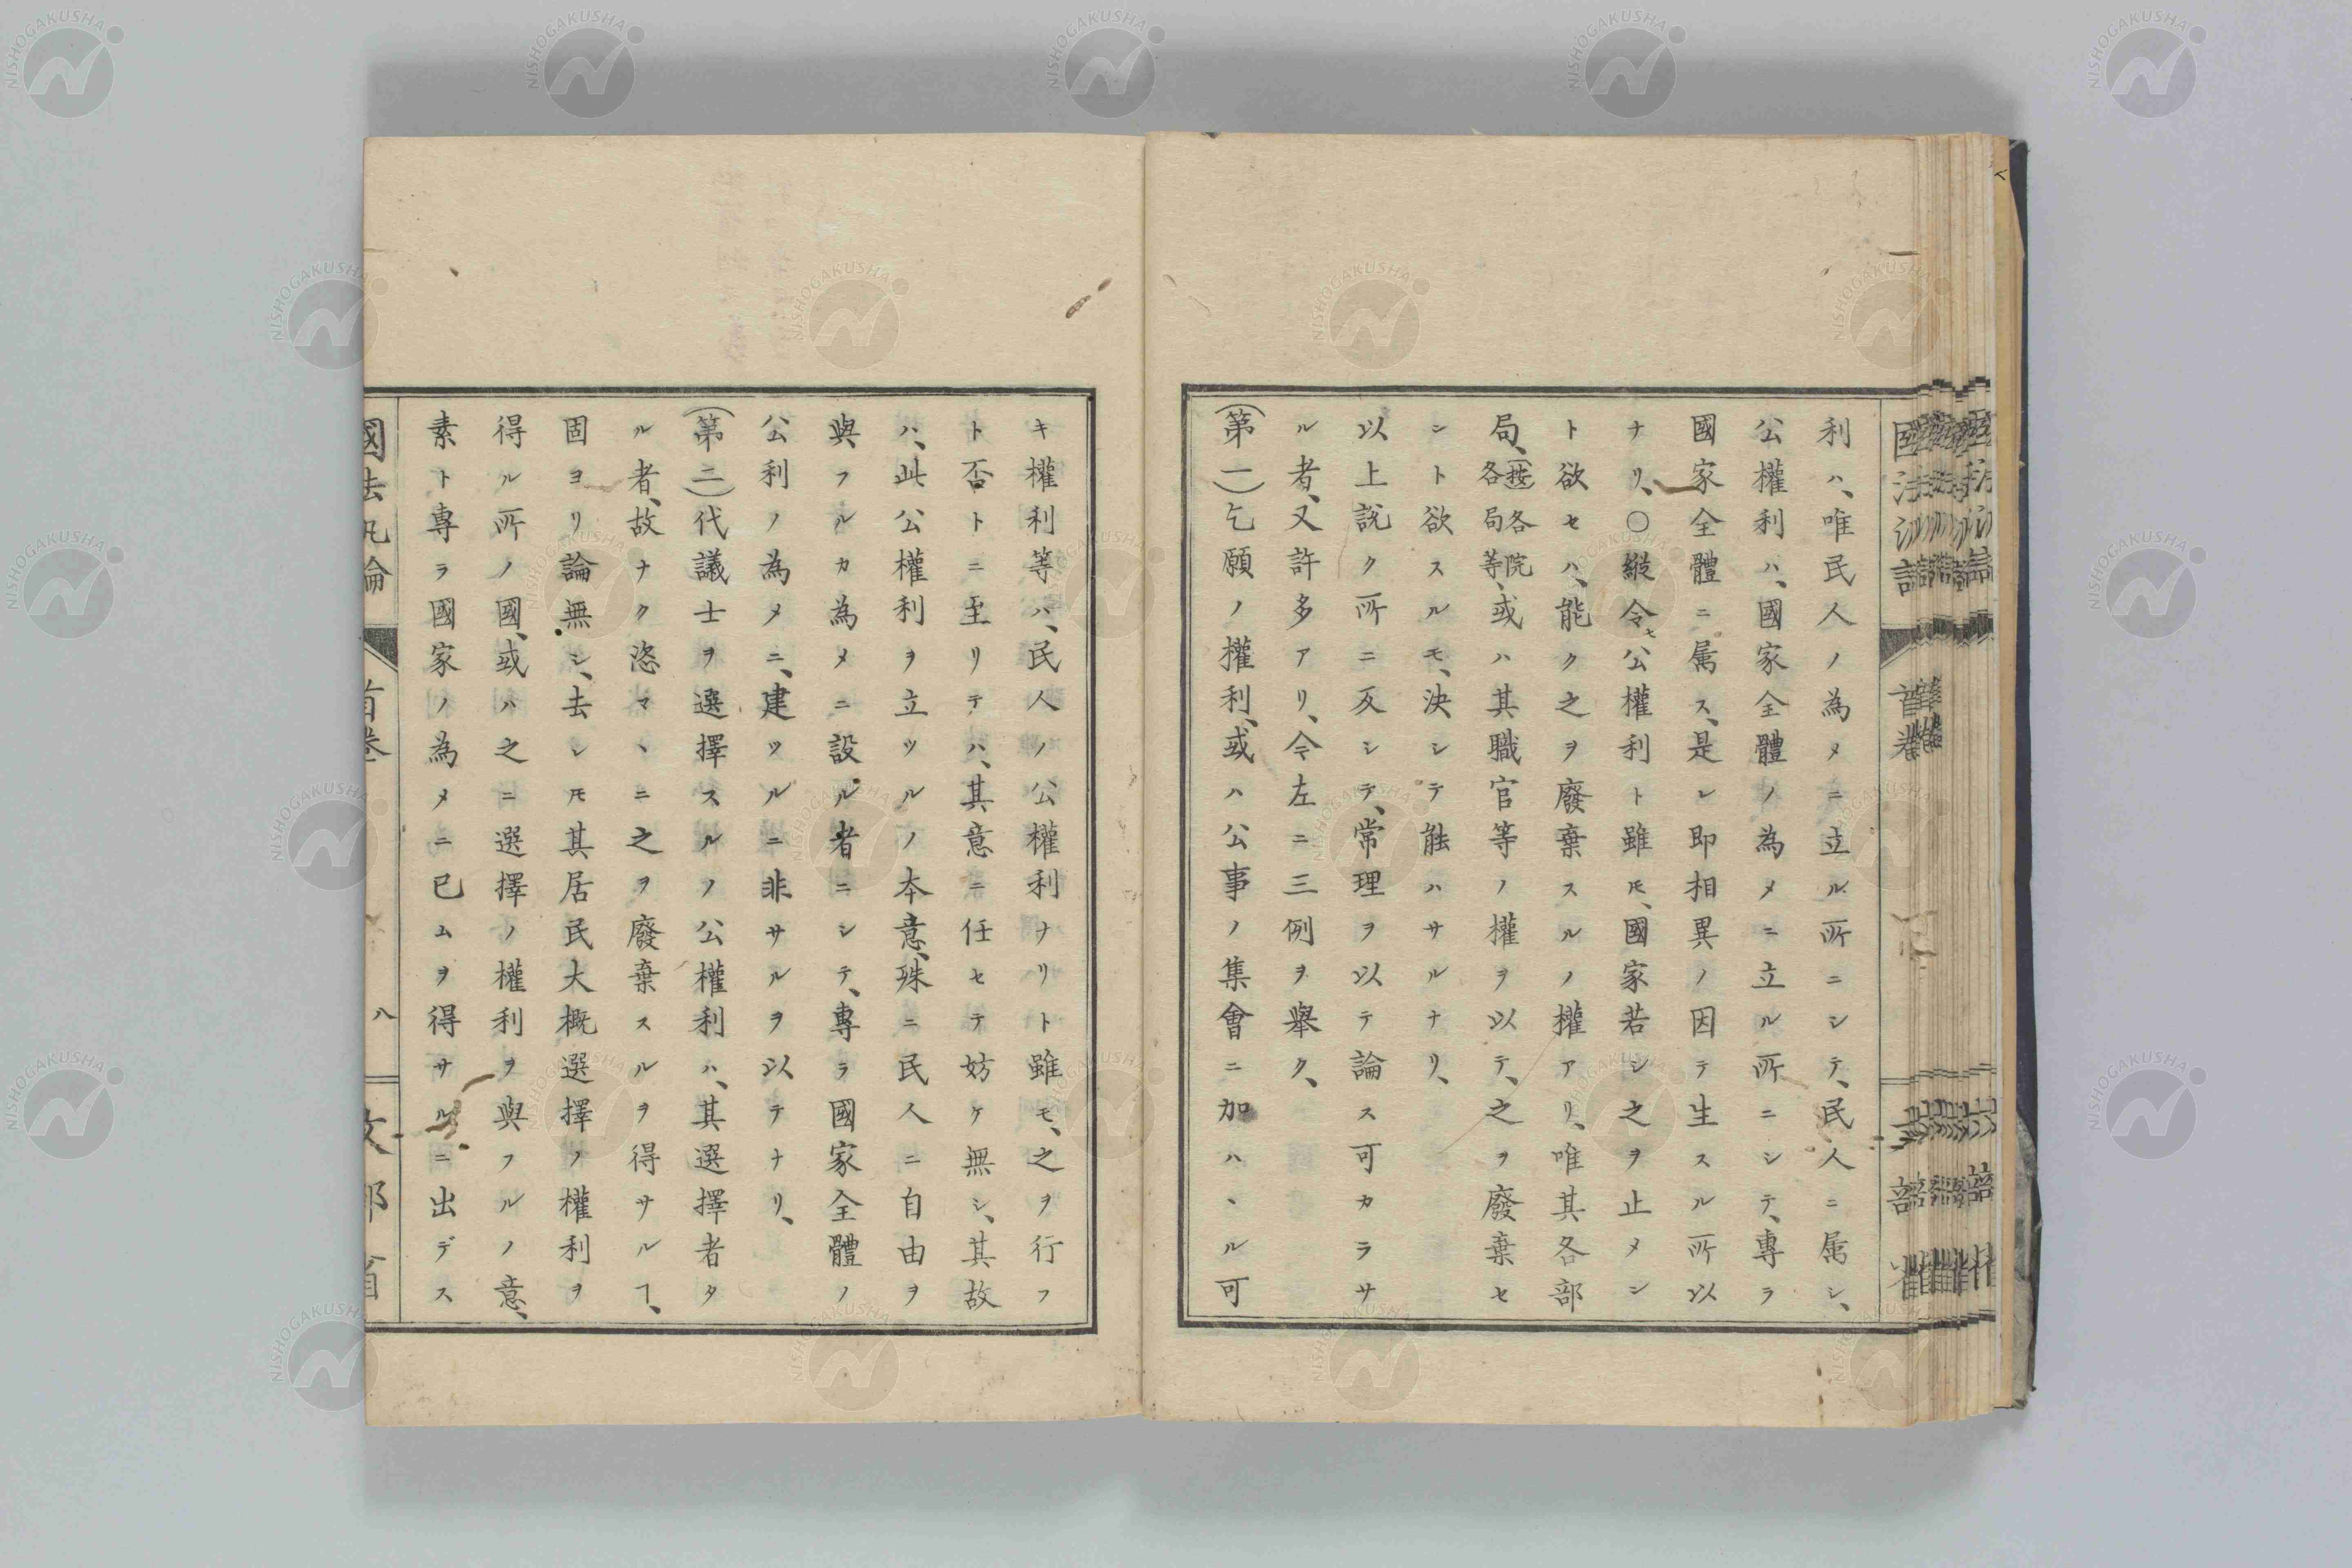 利ハ、唯民人ノ為メニ立ル所ニシテ、民人ニ属シ、
公權利ハ、國家全體ノ為メニ立ル所ニシテ、專ラ
國家全體ニ属ス、是レ即相異ノ因テ生スル所以
ナリ、〇縦令ヒ公權利ト雖𪜈、國家若シ之ヲ止メン
ト欲セハ、能ク之ヲ廢棄スルノ權アリ、唯其各部
局、(按各院各局等、)或ハ其職官等ノ權ヲ以テ、之ヲ廢棄セ
ント欲スルモ、決シテ能ハサルナリ、
以上説ク所ニ反シテ、常理ヲ以テ論ス可カラサ
ル者、又許多アリ、今左ニ三例ヲ舉ク、
(第一)乞願ノ權利、或ハ公事ノ集會ニ加ハヽル可
キ權利等ハ、民人ノ公權利ナリト雖モ、之ヲ行フ
ト否トニ至リテハ、其意ニ任セテ妨ケ無シ、其故
ハ、此公權利ヲ立ツルノ本意、殊ニ民人ニ自由ヲ
與フルカ為メニ設ル者ニシテ、專ラ國家全體ノ
公利ノ為メニ、建ツルニ非サルヲ以テナリ、
(第二)代議士ヲ選擇スルノ公權利ハ、其選擇者タ
ル者、故ナク恣マヽニ之ヲ廢棄スルヲ得サルヿ、
固ヨリ論無シ、去レ𪜈其居民大概選擇ノ權利ヲ
得ル所ノ國、或ハ之ニ選擇ノ權利ヲ與フルノ意、
素ト專ラ國家ノ為メニ已ムヲ得サルニ出デス
國法汎論
首卷
八
文部省